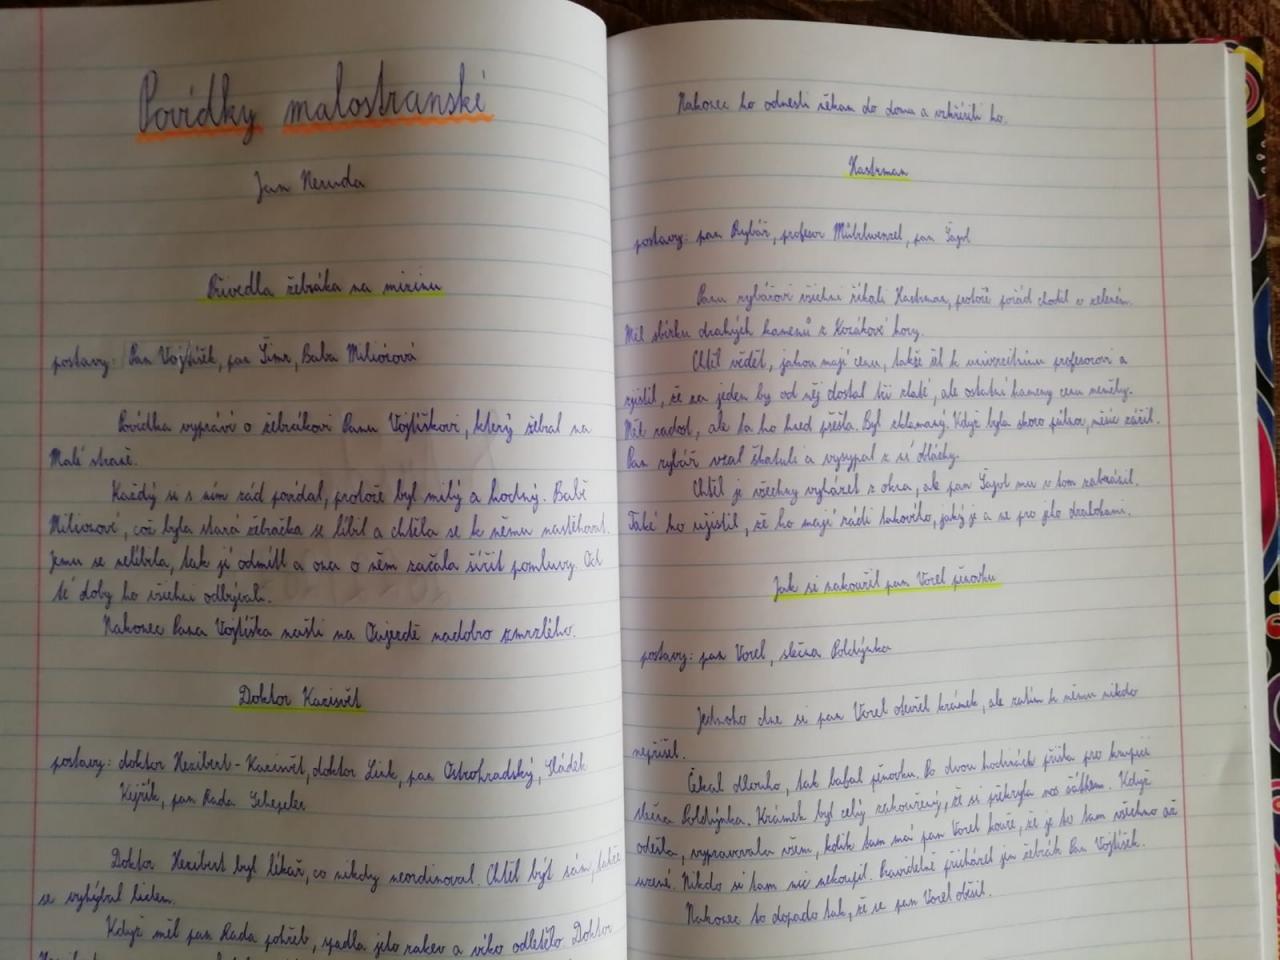 Povídky malostranské
Jan Neruda
Přivedla žebráka na mizinu
postavy: Pan Vojtíšek, pan Šimr, Baba Miliónová
Povídka vypráví o žebrákovi Panu Vojtíškovi, který žebral na
Malé straně.
Každý si s ním rád povídal, protože byl milý a hodný. Babě
Miliónové, což byla stará žebračka se líbil a chtěla se k němu nastěhovat.
Jemu se nelíbila, tak jí odmítl a ona o něm začala šířit pomluvy. Od
té doby ho všichni odbývali.
Nakonec Pana Vojtíška našli na Oujezdě nadobro zmrzlého.
Doktor Kazisvět
postavy: doktor Heribert-Kazisvět, doktor Link, pan Ostrohradský, Sládek
Kejřík, pan Rada Schepeler
Doktor Heribert byl lékař, co nikdy neordinoval. Chtěl být sám, takže
se vyhýbal lidem.
Když měl pan Rada pohřeb, spadla jeho rakev a víko odletělo. Doktor
Nakonec ho odnesli někam do domu a vzkřísili ho.
Hastrman
postavy: pan Rybář, profesor Mühlwenzel, pan Šajvl
Panu rybářovi všichni říkali Hastrman, protože pořád chodil v zeleném.
Měl sbírku drahých kamenů z Kozákové hory.
Chtěl vědět, jakou mají cenu, takže šel k univerzitnímu profesorovi a
zjistil, že za jeden by od něj dostal tři zlaté, ale ostatní kameny cenu neměly.
Měl radost, ale ta ho hned přešla. Byl zklamaný. Když byla skoro půlnoc, měsíc zářil.
Pan rybář vzal škatuli a vysypal z ní oblázky.
Chtěl je všechny vyházet z okna, ale pan Šajvl mu v tom zabránil.
Také ho ujistil, že ho mají rádi takového, jaký je a ne pro jeho drahokamy.
Jak si nakouřil pan Vorel pěnovku
postavy: pan Vorel, slečna Poldýnka
Jednoho dne si pan Vorel otevřel krámek, ale zatím k němu nikdo
nepřišel.
Čekal dlouho, tak bafal pěnovku. Po dvou hodinách přišla pro krupici
slečna Poldýnka. Krámek byl celý zakouřený, že si překryla nos šátkem. Když
odešla, vypravovala všem, kolik tam má pan Vorel kouře, že je to tam všechno až
uzené. Nikdo si tam nic nekoupil. Pravidelně přicházel jen žebrák Pan Vojtíšek.
Nakonec to dopadlo tak, že se pan Vorel oběsil.